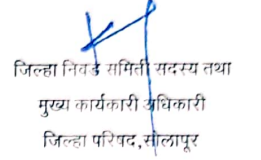 जिल्हा निवड समिती सदस्य तथा
मुख्य कार्यकारी अधिकारी
जिल्हा परिषद,सोलापूर